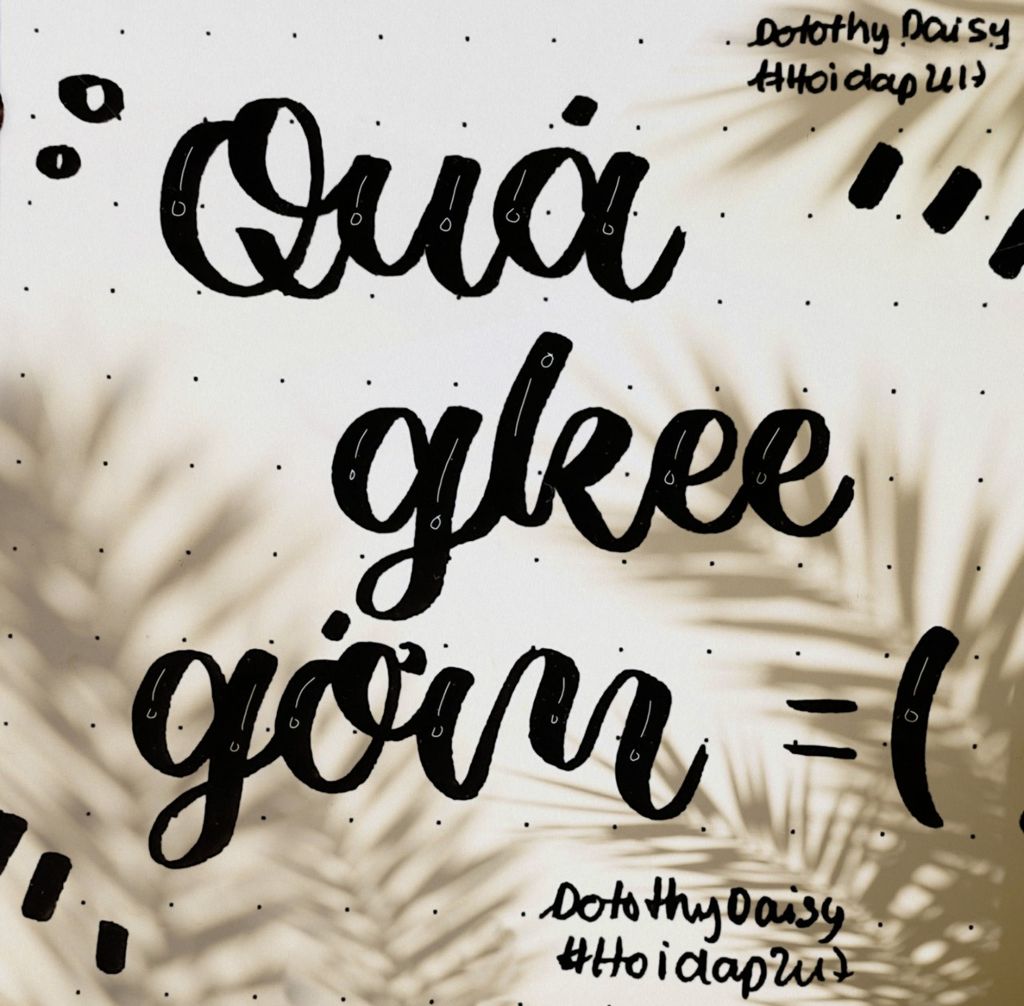 Dorothy Daisy
#Hoidap247
Quá
gkee
gớm =(
Dorothy Daisy
#Hoidap247